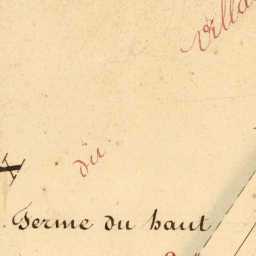 du
Ferme du haut